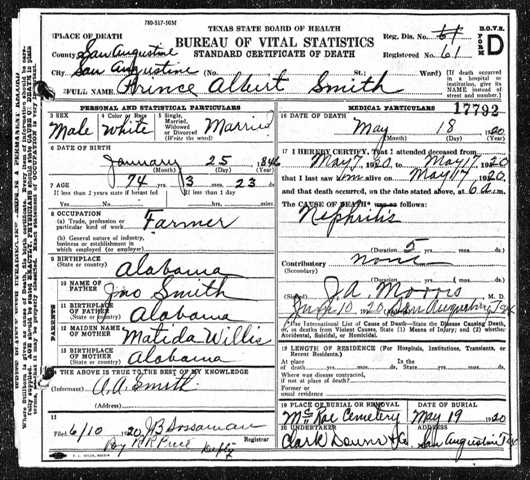 780-517-10M
TEXAS STATE BOARD OF HEALTH
BUREAU OF VITAL STATISTICS
STANDARD CERTIFICATE OF DEATH
Reg. Dis. No. 61
Registered No. 61
B.O.V.S.
FORM D
PLACE OF DEATH
County San Augustine
City San Augustine (No. St.; Ward)
(If death occurred in a hospital or institution, give its NAME instead of street and number.)
FULL NAME Prince Albert Smith
PERSONAL AND STATISTICAL PARTICULARS
3 SEX Male
4 Color or Race White
5 Single, Married, Widowed or Divorced (Write the word) Married
6 DATE OF BIRTH
January 25, 1846
(Month) (Day) (Year)
7 AGE 74 3 23 ds.
If less than 2 years state if breast fed
If less than 1 day
Yes No hrs. min.
8 OCCUPATION
(a) Trade, profession, or particular kind of work Farmer
(b) General nature of industry, business or establishment in which employed (or employer)
9 BIRTHPLACE
(State or country) Alabama
PARENTS
10 NAME OF FATHER Jno Smith
11 BIRTHPLACE OF FATHER
(State or country) Alabama
12 MAIDEN NAME OF MOTHER Matida Willis
13 BIRTHPLACE OF MOTHER
(State or country) Alabama
THE ABOVE IS TRUE TO THE BEST OF MY KNOWLEDGE
(Informant) A.A. Smith
(Address)
Filed 6/10 1920 JB Dossaman
Registrar
By RR Price Deputy
MEDICAL PARTICULARS
17792
16 DATE OF DEATH
May 18 1920
(Month) (Day) (Year)
17 I HEREBY CERTIFY, That I attended deceased from
May 7, 1920 to May 17, 1920
that I last saw him alive on May 17, 1920
and that death occurred, on the date stated above, at 6 a.m.
The CAUSE OF DEATH was as follows:
Nephritis
(Duration) 5 yrs. mos. ds.
Contributory none
(Duration) yrs. mos. ds.
(Signed) J.A. Morris M.D.
June 10 1920 San Augustine Tex
*Use International List of Causes of Death—State the Disease Causing Death, or, in deaths from Violent Causes, State (1) Means of Injury; and (2) whether Accidental, Suicidal, or Homicidal.
18 LENGTH OF RESIDENCE (For Hospitals, Institutions, Transients, or Recent Residents.)
At place of death yrs. mos. ds.
In the State yrs. mos. ds.
Where was disease contracted, if not at place of death?
Former or usual residence
19 PLACE OF BURIAL OR REMOVAL
DATE OF BURIAL
McRae Cemetery May 19 1920
20 UNDERTAKER
ADDRESS
Clark Downs & Co. San Augustine Tex